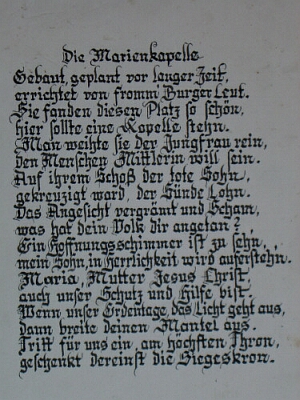 Die Marienkapelle
Gebaut, geplant vor langer Zeit,
errichtet von fromm' Burger Leut.
Sie fanden diesen Platz so schön,
hier sollte eine Kapelle stehn.
Man weihte sie der Jungfrau rein,
den Menschen Mittlerin will sein.
Auf ihrem Schoß der tote Sohn,
gekreuzigt ward, der Sünde Lohn.
Das Angesicht vergrämt und Scham,
was hat dein Volk dir angetan?
Ein Hoffnungsschimmer ist zu sehn,
mein Sohn, in Herrlichkeit wird aufersteh'n.
Maria, Mutter Jesus Christ,
auch unser Schutz und Hilfe bist.
Wenn unser Erdentage, das Licht geht aus,
dann breite deinen Mantel aus.
Tritt für uns ein, am höchsten Thron,
geschenkt dereinst die Siegeskron.